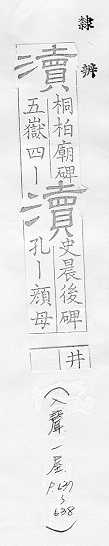 隸辨
瀆
桐柏廟碑
五嶽四丨
瀆
史晨後碑
孔丨顏母
井
(入聲一屋
P.637
638)